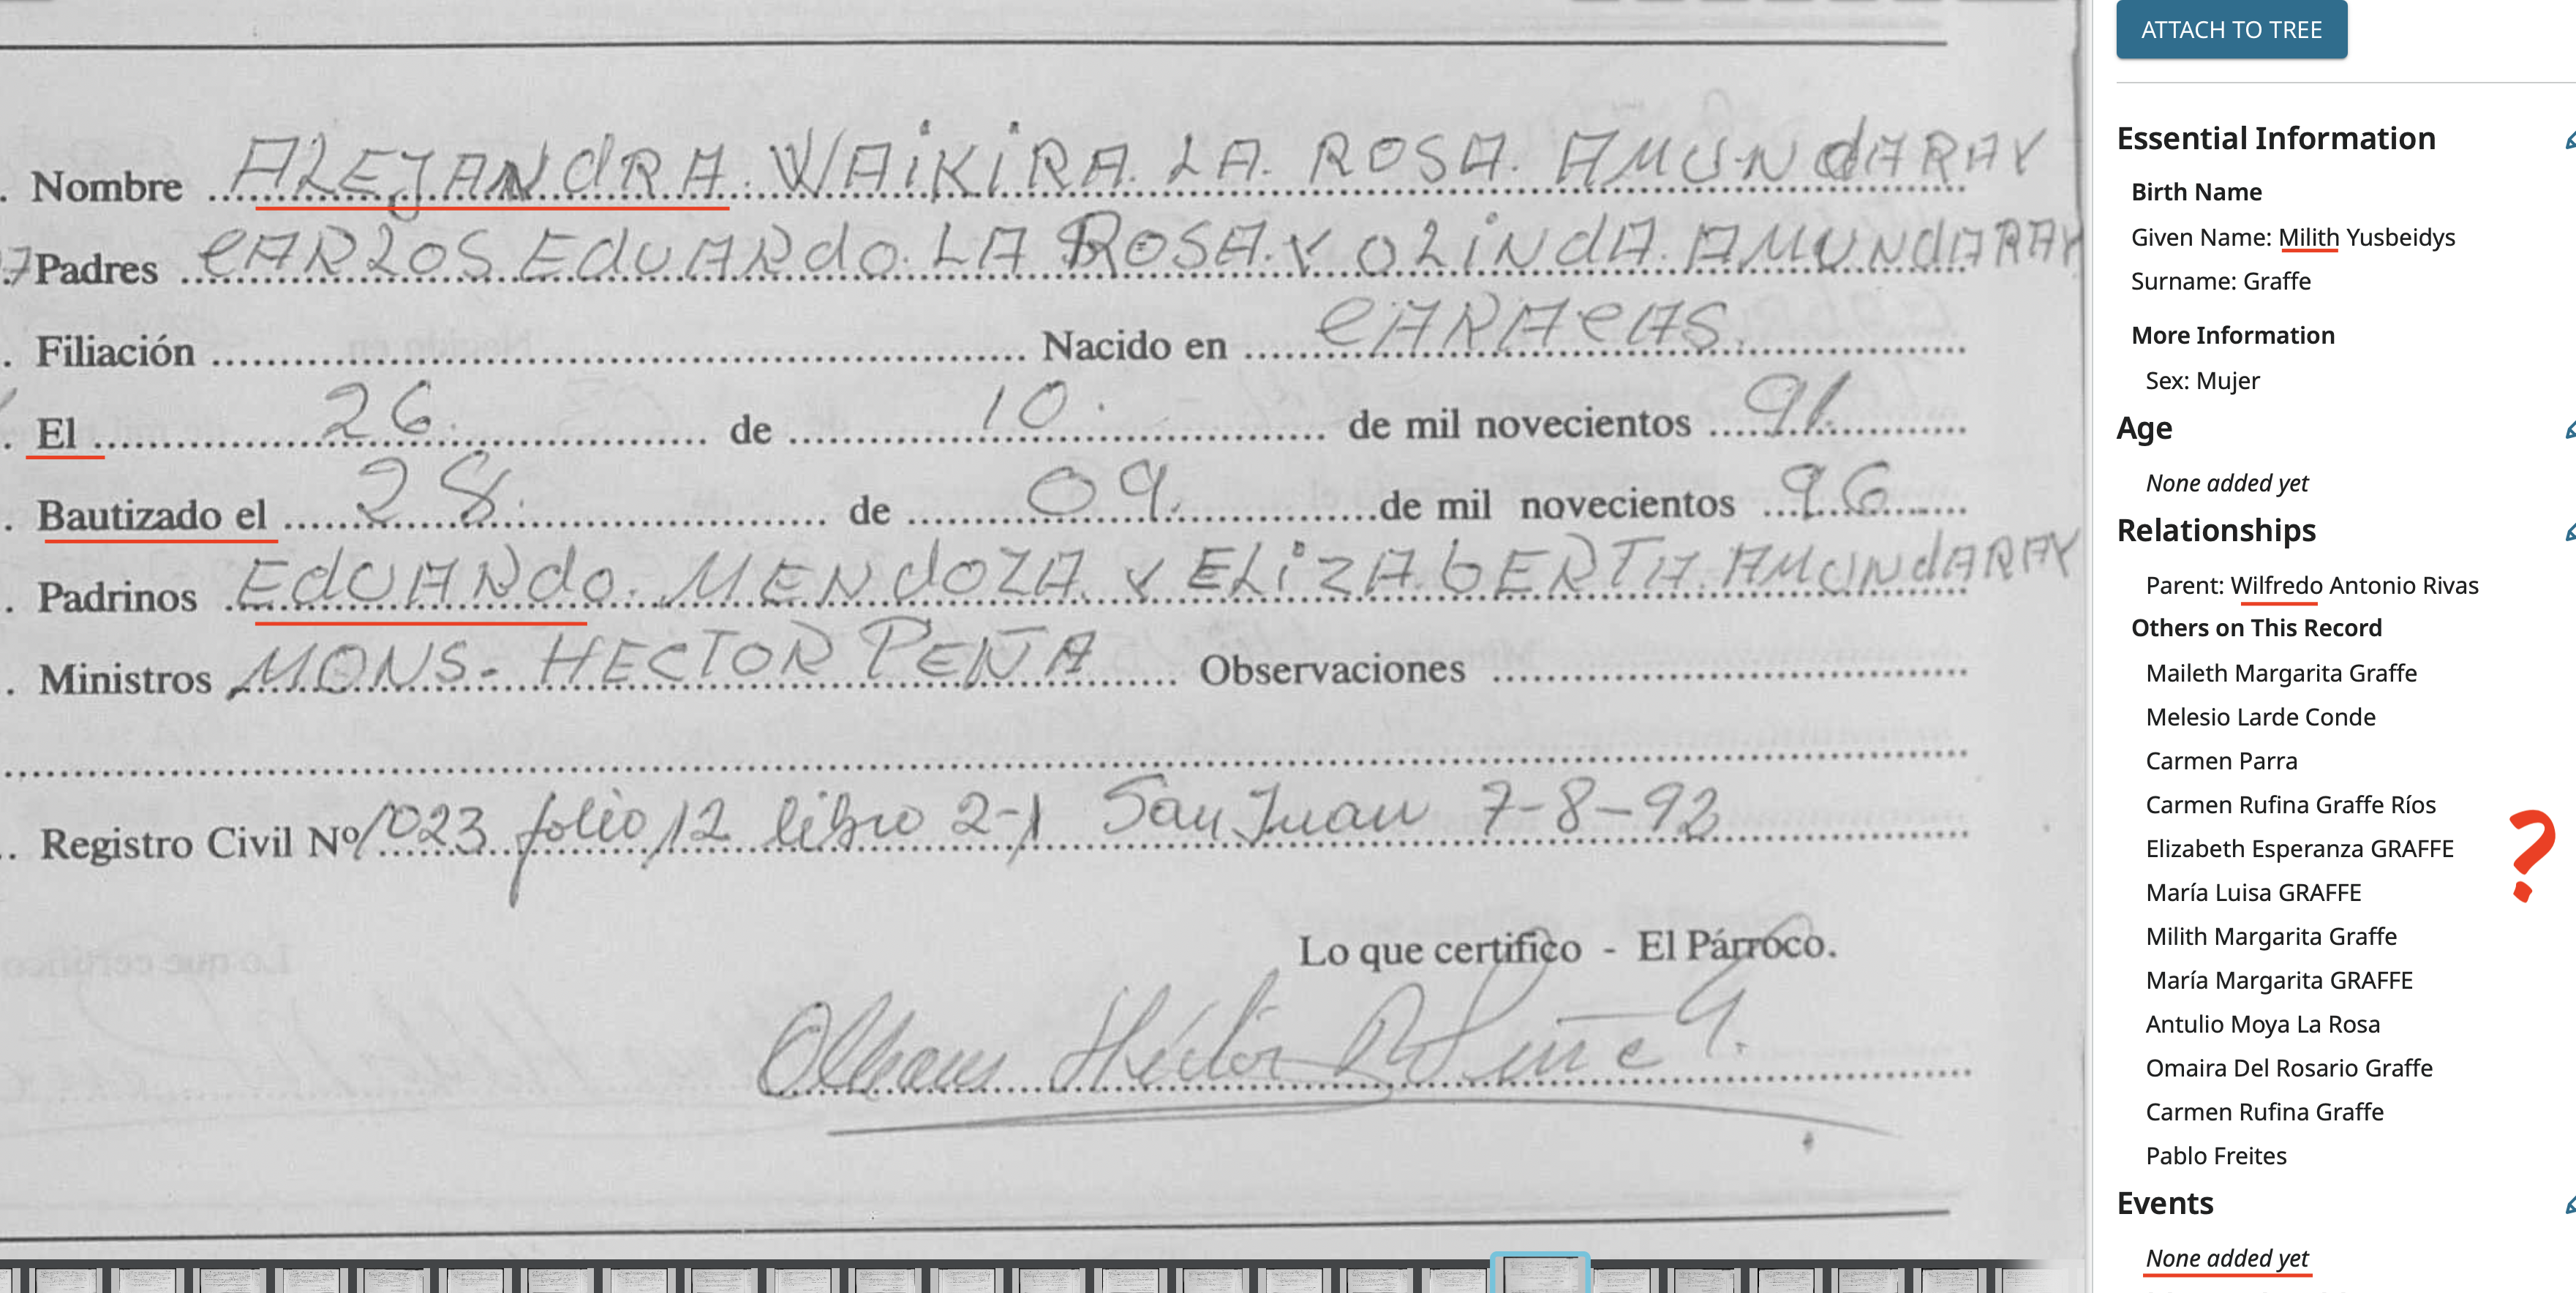 . Nombre ALEJANDRA. WAIKIRA. LA. ROSA. AMUNDARAY
7 Padres CARLOS EDUARDO. LA ROSA. Y OLINDA. AMUNDARAY
. Filiación Nacido en CARACAS.
. El 26. de 10. de mil novecientos 91.
. Bautizado el 28. de 09. de mil novecientos 96
. Padrinos EDUARDO. MENDOZA. Y ELIZABERTH. AMUNDARAY
. Ministros MONS- HECTOR PEÑA Observaciones
.. Registro Civil Nº 1023 folio 12 libro 2-1 San Juan 7-8-92
Lo que certifico - El Párroco.
Lo que certifico
Héctor
ATTACH TO TREE
Essential Information
Birth Name
Given Name: Milith Yusbeidys
Surname: Graffe
More Information
Sex: Mujer
Age
None added yet
Relationships
Parent: Wilfredo Antonio Rivas
Others on This Record
Maileth Margarita Graffe
Melesio Larde Conde
Carmen Parra
Carmen Rufina Graffe Ríos
Elizabeth Esperanza GRAFFE
María Luisa GRAFFE
?
Milith Margarita Graffe
María Margarita GRAFFE
Antulio Moya La Rosa
Omaira Del Rosario Graffe
Carmen Rufina Graffe
Pablo Freites
Events
None added yet